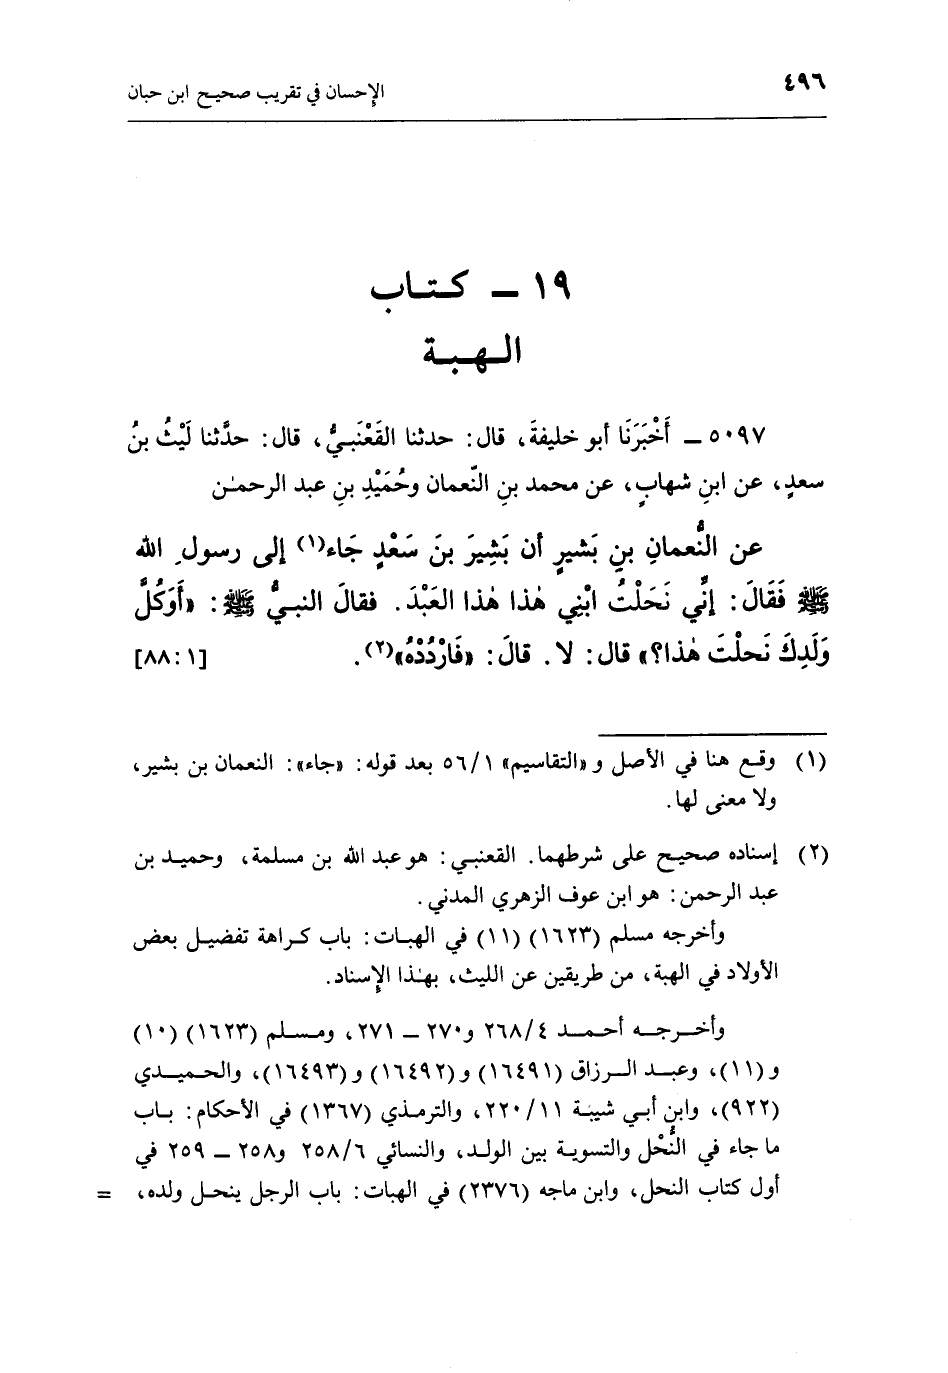 ٤٩٦
الإحسان في تقريب صحيح ابن حبان
١٩ ـ كتاب
الهبة
٥٠٩٧ ـ أَخْبَرَنَا أبو خليفةَ، قال: حدثنا القَعْنَبيُّ، قال: حدَّثنا لَيْثُ بنُ
سعدٍ، عن ابنِ شهابٍ، عن محمد بنِ النُّعمان وحُمَيْدِ بنِ عبد الرحمٰن
عن النُّعمانِ بنِ بَشيرٍ أن بَشِيرَ بنَ سَعْدٍ جَاء(١) إلى رسولِ الله
ﷺ فَقَالَ: إنِّي نَحَلْتُ ابْنِي هٰذا هٰذا العَبْدَ. فقالَ النبيُّ ﷺ: «أَوَكُلَّ
وَلَدِكَ نَحلْتَ هٰذا؟» قال: لا. قالَ: «فَارْدُدْهُ»(٢). [١ :٨٨]
(١) وقع هنا في الأصل و«التقاسيم» ٥٦/١ بعد قوله: «جاء»: النعمان بن بشير،
ولا معنى لها.
(٢) إسناده صحيح على شرطهما. القعنبي: هو عبد الله بن مسلمة، وحميد بن
عبد الرحمن: هو ابن عوف الزهري المدني.
وأخرجه مسلم (١٦٢٣) (١١) في الهبات: باب كراهة تفضيل بعض
الأولاد في الهبة، من طريقين عن الليث، بهٰذا الإسناد.
وأخرجه أحمد ٢٦٨/٤ و٢٧٠ ـ ٢٧١، ومسلم (١٦٢٣) (١٠)
و(١١)، وعبد الرزاق (١٦٤٩١) و(١٦٤٩٢) و(١٦٤٩٣)، والحميدي
(٩٢٢)، وابن أبي شيبة ٢٢٠/١١، والترمذي (١٣٦٧) في الأحكام: باب
ما جاء في النُّحْل والتسوية بين الولد، والنسائي ٢٥٨/٦ و٢٥٨ ـ ٢٥٩ في
أول كتاب النحل، وابن ماجه (٢٣٧٦) في الهبات: باب الرجل ينحل ولده، =